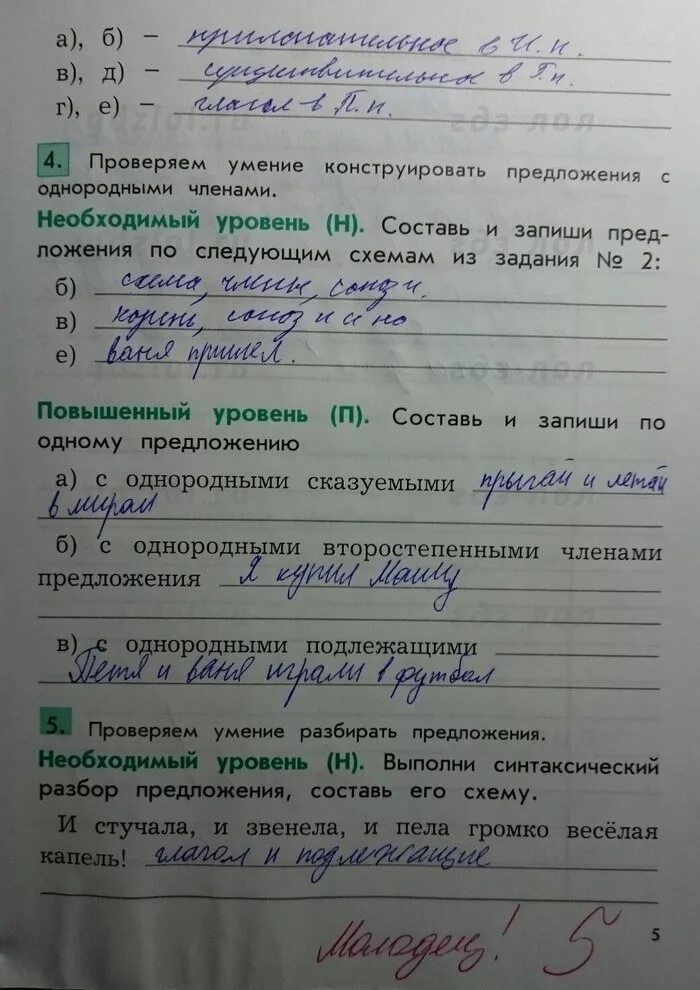 а), б) – прилагательное в И.п.
в), д) – существительное в Т.п.
г), е) – глагол в П.п.
4. Проверяем умение конструировать предложения с
однородными членами.
Необходимый уровень (Н). Составь и запиши пред-
ложения по следующим схемам из задания № 2:
б) схема, члены, союз и.
в) корень, союз и и но
е) ваня пришел.
Повышенный уровень (П). Составь и запиши по
одному предложению
а) с однородными сказуемыми прыгай и летай
в мирай
б) с однородными второстепенными членами
предложения Я купил Машу
в) с однородными подлежащими
Петя и ваня играли в футбол
5. Проверяем умение разбирать предложения.
Необходимый уровень (Н). Выполни синтаксический
разбор предложения, составь его схему.
И стучала, и звенела, и пела громко весёлая
капель! глагол и подлежащие
Молодец! 5
5